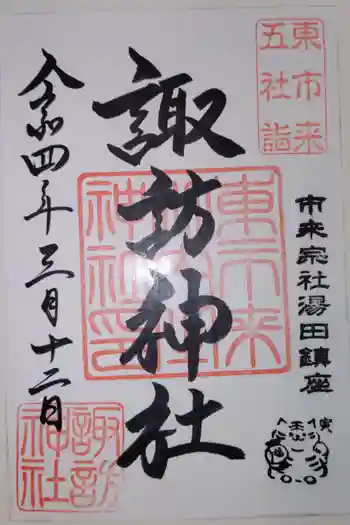 東市来
五社詣
市来宗社湯田鎮座
諏訪神社
令和四年三月十二日
諏訪
神社